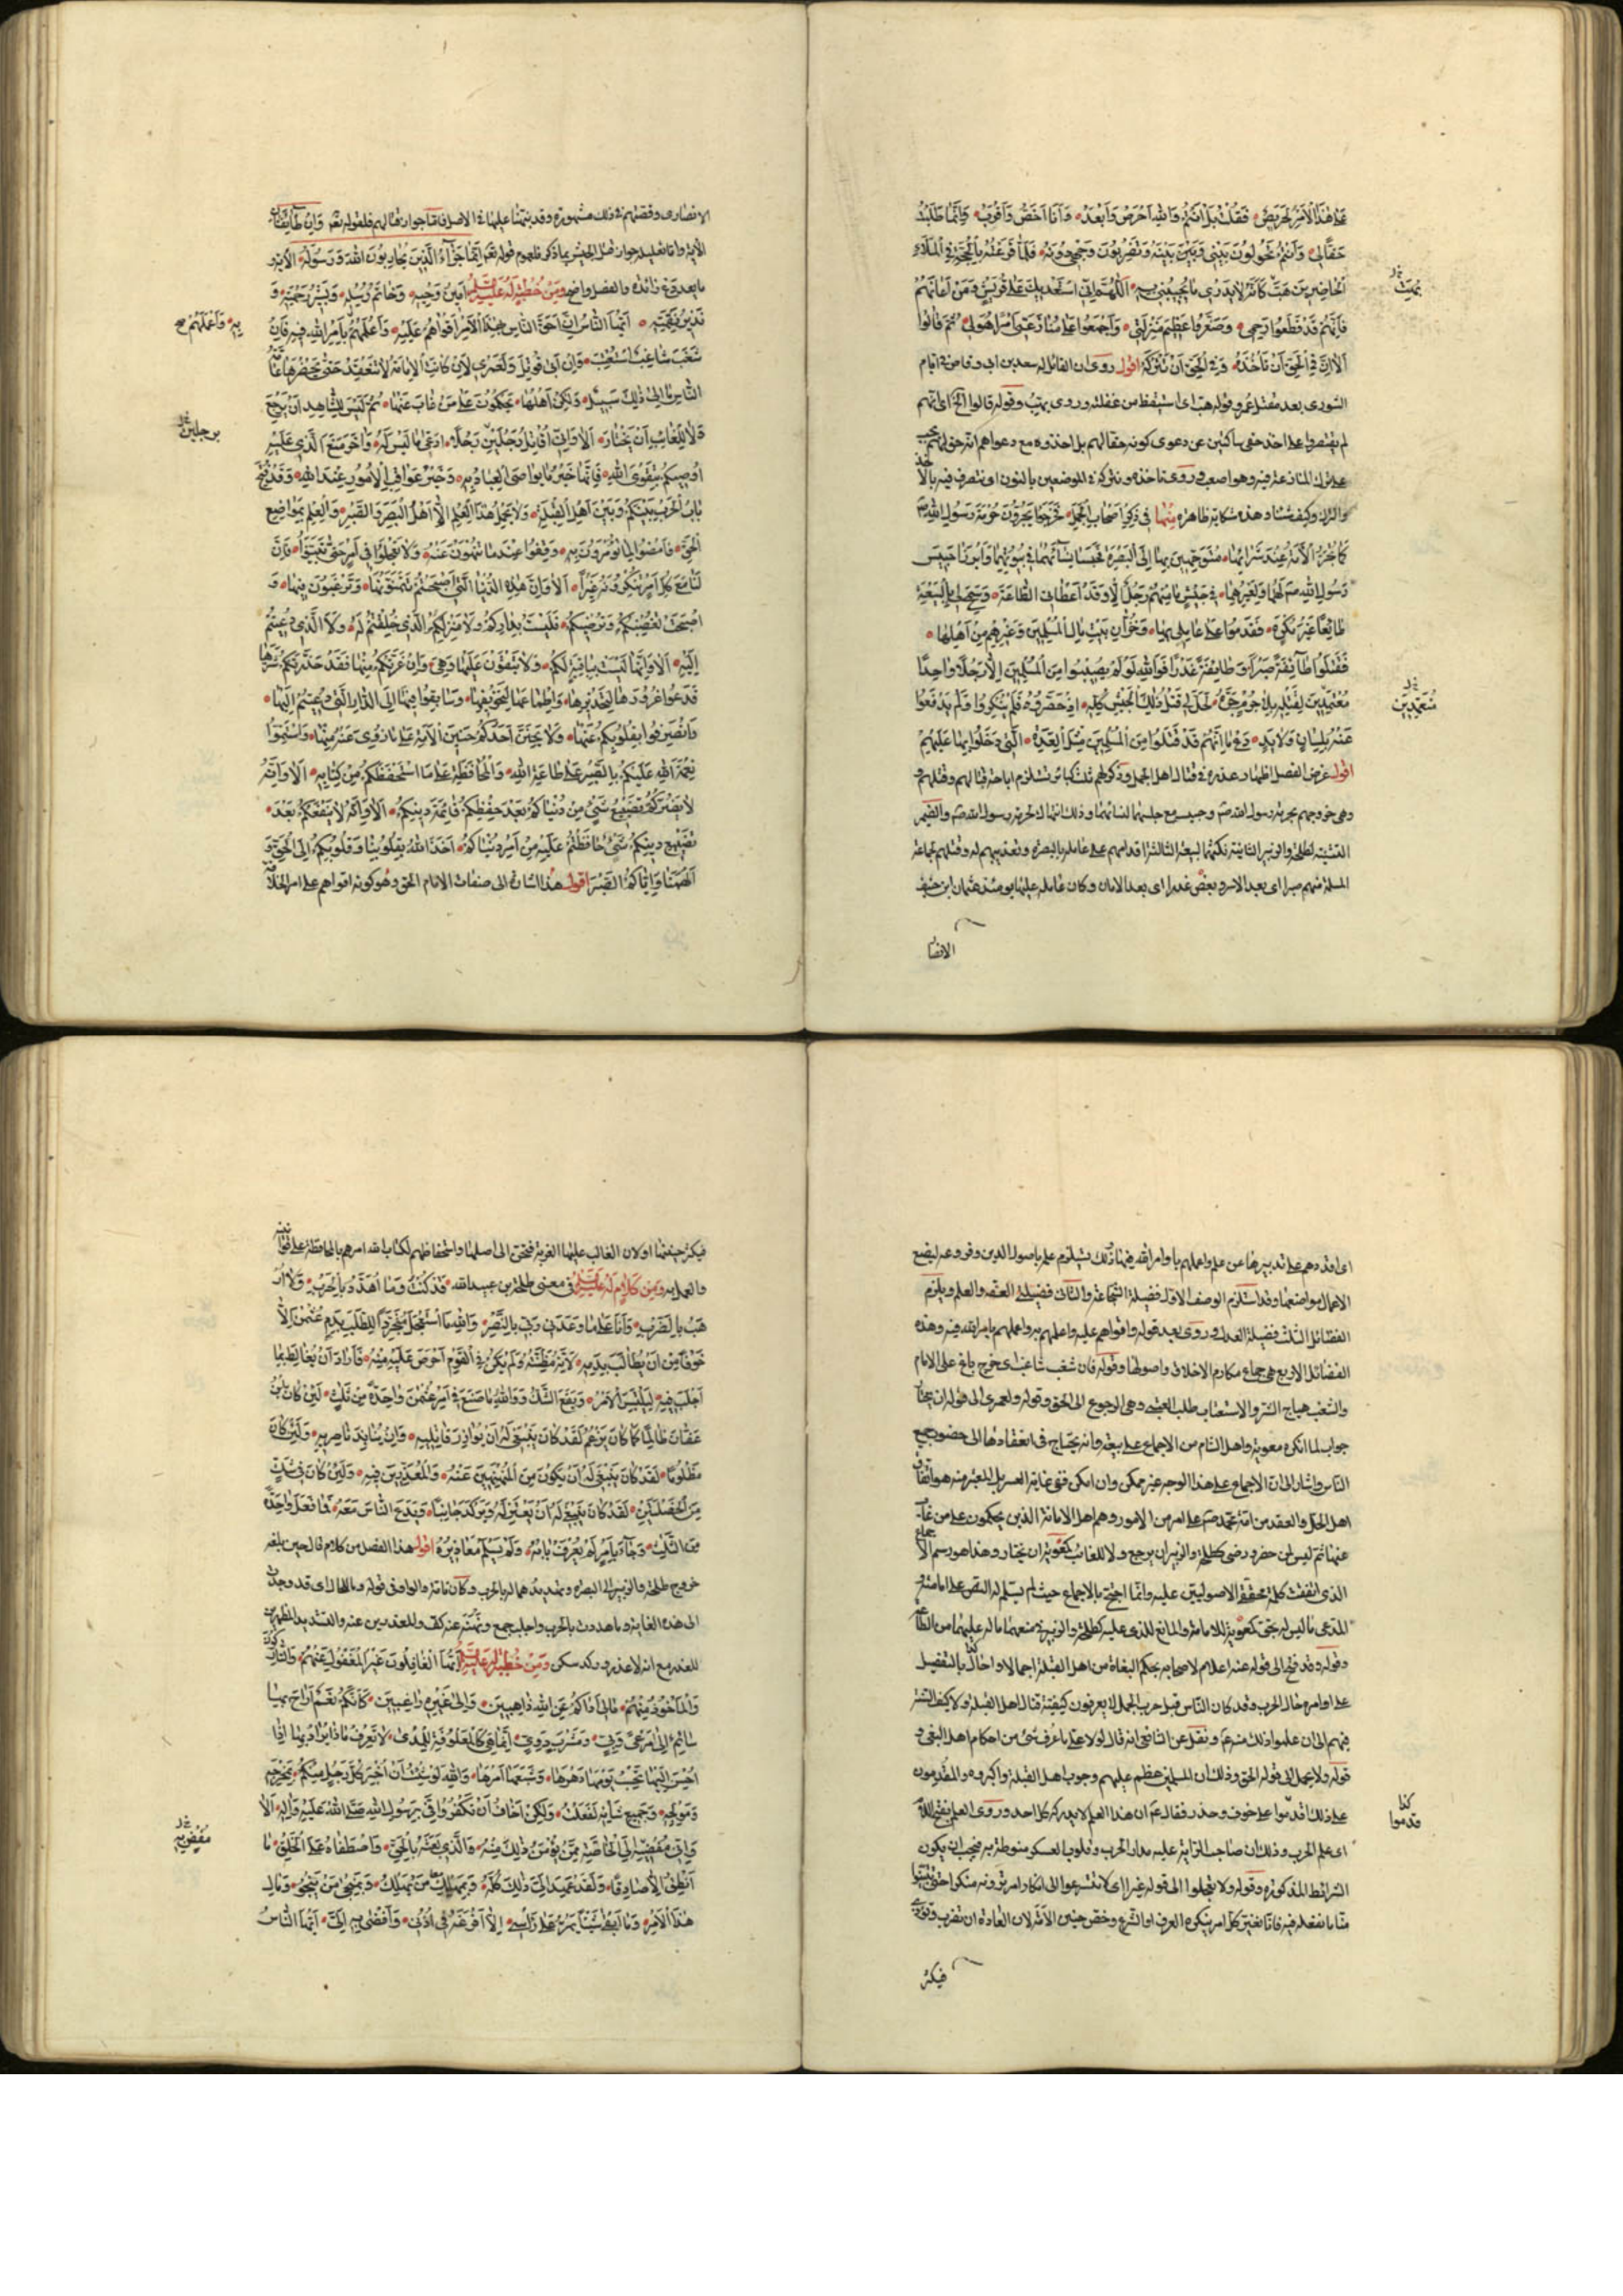 على هذا الأمر لحريص فقلت بل أنتم والله أحرص وأبعد وأنا أخص وأقرب وإنما طلبت
حقا لي وأنتم تحولون بيني وبينه وتضربون وجهي دونه فلما قرعته بالحجة في الملاء
الحاضرين هب كأنه لا يدري ما يجيبني به اللهم إني أستعديك على قريش ومن أعانهم
فإنهم قد قطعوا رحمي وصغروا عظيم منزلتي وأجمعوا على منازعتي أمرا هو لي ثم قالوا
ألا إن في الحق أن تأخذه وفي الحق أن تتركه أقول روى ان القائل له سعد بن ابي وقاص في ايام
الشورى بعد مقتل عمر وقوله هب اى استيقظ من غفلته وروى بهت وقوله قالوا الخ اى انهم
لم يقتصروا على اخذ حقى ساكتين عن دعوى كونه حقا لهم بل اخذوه مع دعواهم انه حق لهم يجب
على ترك المنازعة فيه وهو اصعب وروى ناخذه ونتركه في الموضعين بالنون اى نتصرف فيه بالاخذ
والترك وكيف شئنا وهذه شكاية ظاهرة منها في ذكر أصحاب الجمل فخرجوا يجرون حرمة رسول الله ص
كما تجر الأمة عند شرائها متوجهين بها إلى البصرة فحبسا نساءهما في بيوتهما وأبرزا حبيس
رسول الله ص لهما ولغيرهما في جيش ما منهم رجل إلا وقد أعطاني الطاعة وسمح لي بالبيعة
طائعا غير مكره فقدموا على عاملي بها وخزان بيت مال المسلمين وغيرهم من أهلها
فقتلوا طائفة صبرا وطائفة غدرا فوالله لو لم يصيبوا من المسلمين إلا رجلا واحدا
معتمدين لقتله بلا جرم جره لحل لي قتل ذلك الجيش كله إذ حضروه فلم ينكروا ولم يدفعوا
عنه بلسان ولا يد دع ما إنهم قد قتلوا من المسلمين مثل العدة التي دخلوا بها عليهم
اقول غرض الفصل اظهار عذره في قتال اهل الجمل وذكر لهم ثلث كبائر تستلزم اباحة قتالهم وقتلهم
وهى خروجهم بحرمة رسول الله ص وحبيسه مع حبسهما لنسائهما وذلك انتهاك لحرمة رسول الله ص والضمير
التثنيه لطلحة والزبير الثانية نكثهما لبيعته الثالثة اقدامهم على عامله بالبصره وتعذيبهم له وقتلهم لجماعة
المسلمين منهم صبرا اى بعد الاسر وبعض غدرا اى بعد الامان وكان عامله عليها يومئذ عثمان ابن حنيف
الانصا
بهت
متعمدين
الانصارى وقصتهم في ذلك مشهورة وقد نبهنا عليها في الاصل فاما جواز قتالهم فلقوله تعالى وان طائفتان
الآية واما تعليله جواز قتل الجيش بما ذكر فلعموم قوله تعالى إنما جزاء الذين يحاربون الله ورسوله الآية و
ما بعد دع زائدة والفصل واضح ومن خطبة له عليه السلام أمين وحيه وخاتم رسله وبشير رحمته و
نذير نقمته أيها الناس إن أحق الناس بهذا الأمر أقواهم عليه وأعلمهم بأمر الله فيه فإن
شغب شاغب استعتب وإن أبى قوتل ولعمري لئن كانت الإمامة لا تنعقد حتى تحضرها عامة
الناس ما إلى ذلك سبيل ولكن أهلها يحكمون على من غاب عنها ثم ليس للشاهد أن يرجع
ولا للغائب أن يختار ألا وإني أقاتل رجلين رجلا ادعى ما ليس له وآخر منع الذي عليه
أوصيكم بتقوى الله فإنها خير ما تواصى العباد به وخير عواقب الأمور عند الله وقد فتح
باب الحرب بينكم وبين أهل القبلة ولا يحمل هذا العلم إلا أهل البصر والصبر والعلم بمواضع
الحق فامضوا لما تؤمرون به وقفوا عند ما تنهون عنه ولا تعجلوا في أمر حتى تتبينوا فإن
لنا مع كل أمر تنكرونه غيرا ألا وإن هذه الدنيا التي أصبحتم تتمنونها وترغبون فيها و
أصبحت تغضبكم وترضيكم فليست بداركم ولا منزلكم الذي خلقتم له ولا الذي دعيتم
إليه ألا وإنها ليست بباقية لكم ولا تبقون عليها وهي وإن غرتكم منها فقد حذرتكم شرها
فدعوا غرورها لتحذيرها وإطماعها لتخويفها وسابقوا فيها إلى الدار التي دعيتم إليها
وانصرفوا بقلوبكم عنها ولا يخنن أحدكم خنين الأمة على ما زوي عنه منها واستتموا
نعمة الله عليكم بالصبر على طاعة الله والمحافظة على ما استحفظكم من كتابه ألا وإنه
لا يضركم تضييع شيء من دنياكم بعد حفظكم قائمة دينكم ألا وإنه لا ينفعكم بعد
تضييع دينكم شيء حافظتم عليه من أمر دنياكم أخذ الله بقلوبنا وقلوبكم إلى الحق و
ألهمنا وإياكم الصبر اقول هذا اشارة الى صفات الامام الحق وهو كونه اقواهم على امر الخلافة
به وأعملهم
برجلين
اى اقدرهم على تدبيرها عن علم واعلمهم باوامر الله فيها وذلك يستلزم علمه باصول الدين وفروعه ليضع
الاعمال مواضعها وقد استلزم الوصف الاول فضيلة الشجاعة والثانى فضيلة العفة والعلم ويلزم
الفضائل الثلث فضيلة العدل وروى بعد قوله واقواهم عليه واعملهم به واعلمهم بامر الله فيه وهذه
الفضائل الاربع هى جماع مكارم الاخلاق واصولها وقوله فان شغب شاغب اى خرج باغ على الامام
والشغب هياج الشر والاستعتاب طلب العتبى وهى الرجوع الى الحق وقوله ولعمرى الى قوله ان يختار
جواب لما انكره معوية واهل الشام من الاجماع على بيعته وانه يحتاج فى انعقادها الى حضور جميع
الناس واشار الى ان الاجماع على هذا الوجه غير ممكن وان امكن ففى غاية العسر بل المعتبر منه هو اتفاق
اهل الحل والعقد من امة محمد ص على امر من الامور وهم اهل الامامة الذين يحكمون على من غاب
عنها ثم ليس لمن حضر ورضى كطلحة والزبير ان يرجع ولا للغائب كمعوية ان يختار وهذا هو رسم الاجماع
الذى اتفقت كلمة محققى الاصوليين عليه وانما احتج بالاجماع حيث لم يسلم له النص على امامته و
المدعى ما ليس له بحق كمعوية للامامة والمانع للذى عليه كطلحة والزبير في منعهما ما له عليهما من الطاعة
وقوله وقد فتح الى قوله عنه اعلام لاصحابه بحكم البغاة من اهل القبلة اجمالا واحال بالتفصيل
على اوامره حال الحرب وقد كان الناس قبل حرب الجمل لا يعرفون كيفية قتال اهل القبلة ولا كيف السنة
فيهم الى ان علموا ذلك منه ع ونقل عن الشافعى انه قال لولا على ما عرف شئ من احكام اهل البغى و
قوله ولا يحمل الى قوله الحق وذلك ان المسلمين عظم عليهم وجوب اهل القبلة واكبروه والمقدمون
على ذلك اقدموا على خوف وحذر فقال ع ان هذا العلم لا يدركه كل احد وروى العلم بفتح اللام
اى علم الحرب وذلك ان صاحب الراية عليه مدار الحرب وقلوب العسكر منوطة به فيجب ان يكون
الشرائط المذكورة وقوله ولا تعجلوا الى قوله غيرا اى لا تتسرعوا الى انكار امر ترونه منكرا حتى تتبينوا
منا ما نفعله فيه فانا نغير كل امر ينكره العرف او الشرع وخص حنين الامة لان العادة ان تضرب وتؤذى
فيكثر
كذا
قدموا
فيكثر حنينها او لان الغالب عليها الغربة فتحن الى اصلها واستحفاظهم لكتاب الله امرهم بالمحافظة على قوانينه
والعمل به ومن كلام له عليه السلام فى معنى طلحة بن عبيد الله قد كنت وما أهدد بالحرب ولا أر
هب بالضرب وأنا على ما وعدني ربي بالنصر والله ما استعجل متجردا للطلب بدم عثمن إلا
خوفا من أن يطالب بدمه لأنه مظنته ولم يكن في القوم أحرص عليه منه فأراد أن يغالط بما
أجلب فيه ليلبس الأمر ويقع الشك ووالله ما صنع في أمر عثمن واحدة من ثلث لئن كان ابن
عفان ظالما كما كان يزعم لقد كان ينبغي له أن يوازر قاتليه وإن ينابذ ناصريه ولئن كان
مظلوما لقد كان ينبغي له أن يكون من المنهنهين عنه والمعذرين فيه ولئن كان في شك
من الخصلتين لقد كان ينبغي له أن يعتزله ويركد جانبا ويدع الناس معه فما فعل واحدة
من الثلث وجاء بأمر لم يعرف بابه ولم يسلم معاذيره اقول هذا الفصل من كلام قاله حين بلغه
خروج طلحة والزبير الى البصره وتهديدهما له بالحرب وكان تامة والواو فى قوله وما للحال اى قد وجدت
الى هذه الغاية وما هددت بالحرب واجلب جمع ونهنه عنه كف والمعذرين عنه والتشديد المظهرين
للعذر مع انه لا عذر وركد سكن ومن خطبة له عليه السلام أيها الغافلون غير المغفول عنهم والتاركون
والمأخوذ منهم مالي أراكم عن الله ذاهبين وإلى غيره راغبين كأنكم نعم أراح بها
سائم إلى مرعى وبي ومشرب دوي إنما هي كالمعلوفة للمدى لا تعرف ماذا يراد بها إذا
أحسن إليها تحسب يومها دهرها وشبعها أمرها والله لو شئت أن أخبر كل رجل منكم بمخرجه
ومولجه وجميع شأنه لفعلت ولكن أخاف أن تكفروا في برسول الله صلى الله عليه وآله ألا
وإني مفضيه إلى الخاصة ممن يؤمن ذلك منه والذي بعثه بالحق واصطفاه على الخلق ما
أنطق إلا صادقا ولقد عهد إلي ذلك كله وبمهلك من يهلك وبمنجى من ينجو ومآل
هذا الأمر وما أبقى شيئا يمر على رأسي إلا أفرغه في أذني وأفضى به إلي أيها الناس
مفض به